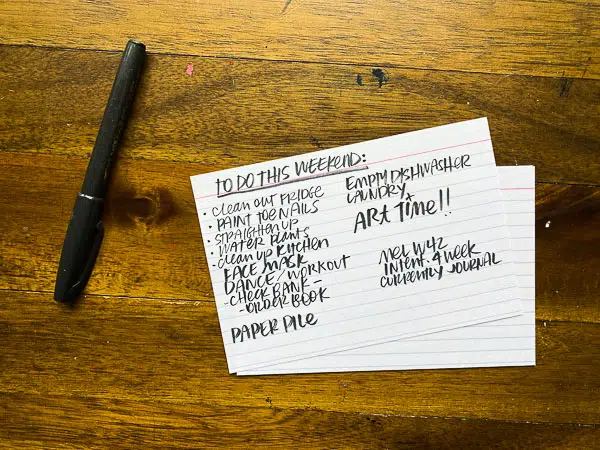 TO DO THIS WEEKEND:
• clean out FRIDGE
• PAINT TOE NAILS
• STRAIGHTEN UP
• WATER plants
- clean up KITCHEN
FACE MASK
DANCE / WORKOUT
- CHECK BANK -
- ORDER BOOK
PAPER PILE
EMPTY DISHWASHER
LAUNDRY
ART TIME!!
MEL W42
INTENT. 4 WEEK
CURRENTLY JOURNAL